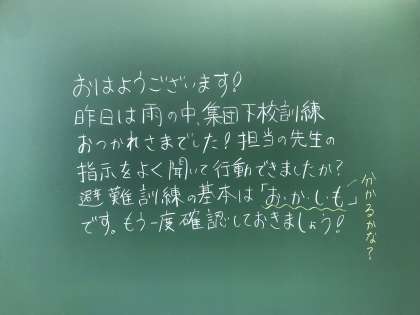 おはようございます!
昨日は雨の中、集団下校訓練
おつかれさまでした!担当の先生の
指示をよく聞いて行動できましたか?
避難訓練の基本は「お・か・し・も」
です。もう一度確認しておきましょう!
分かるかな?